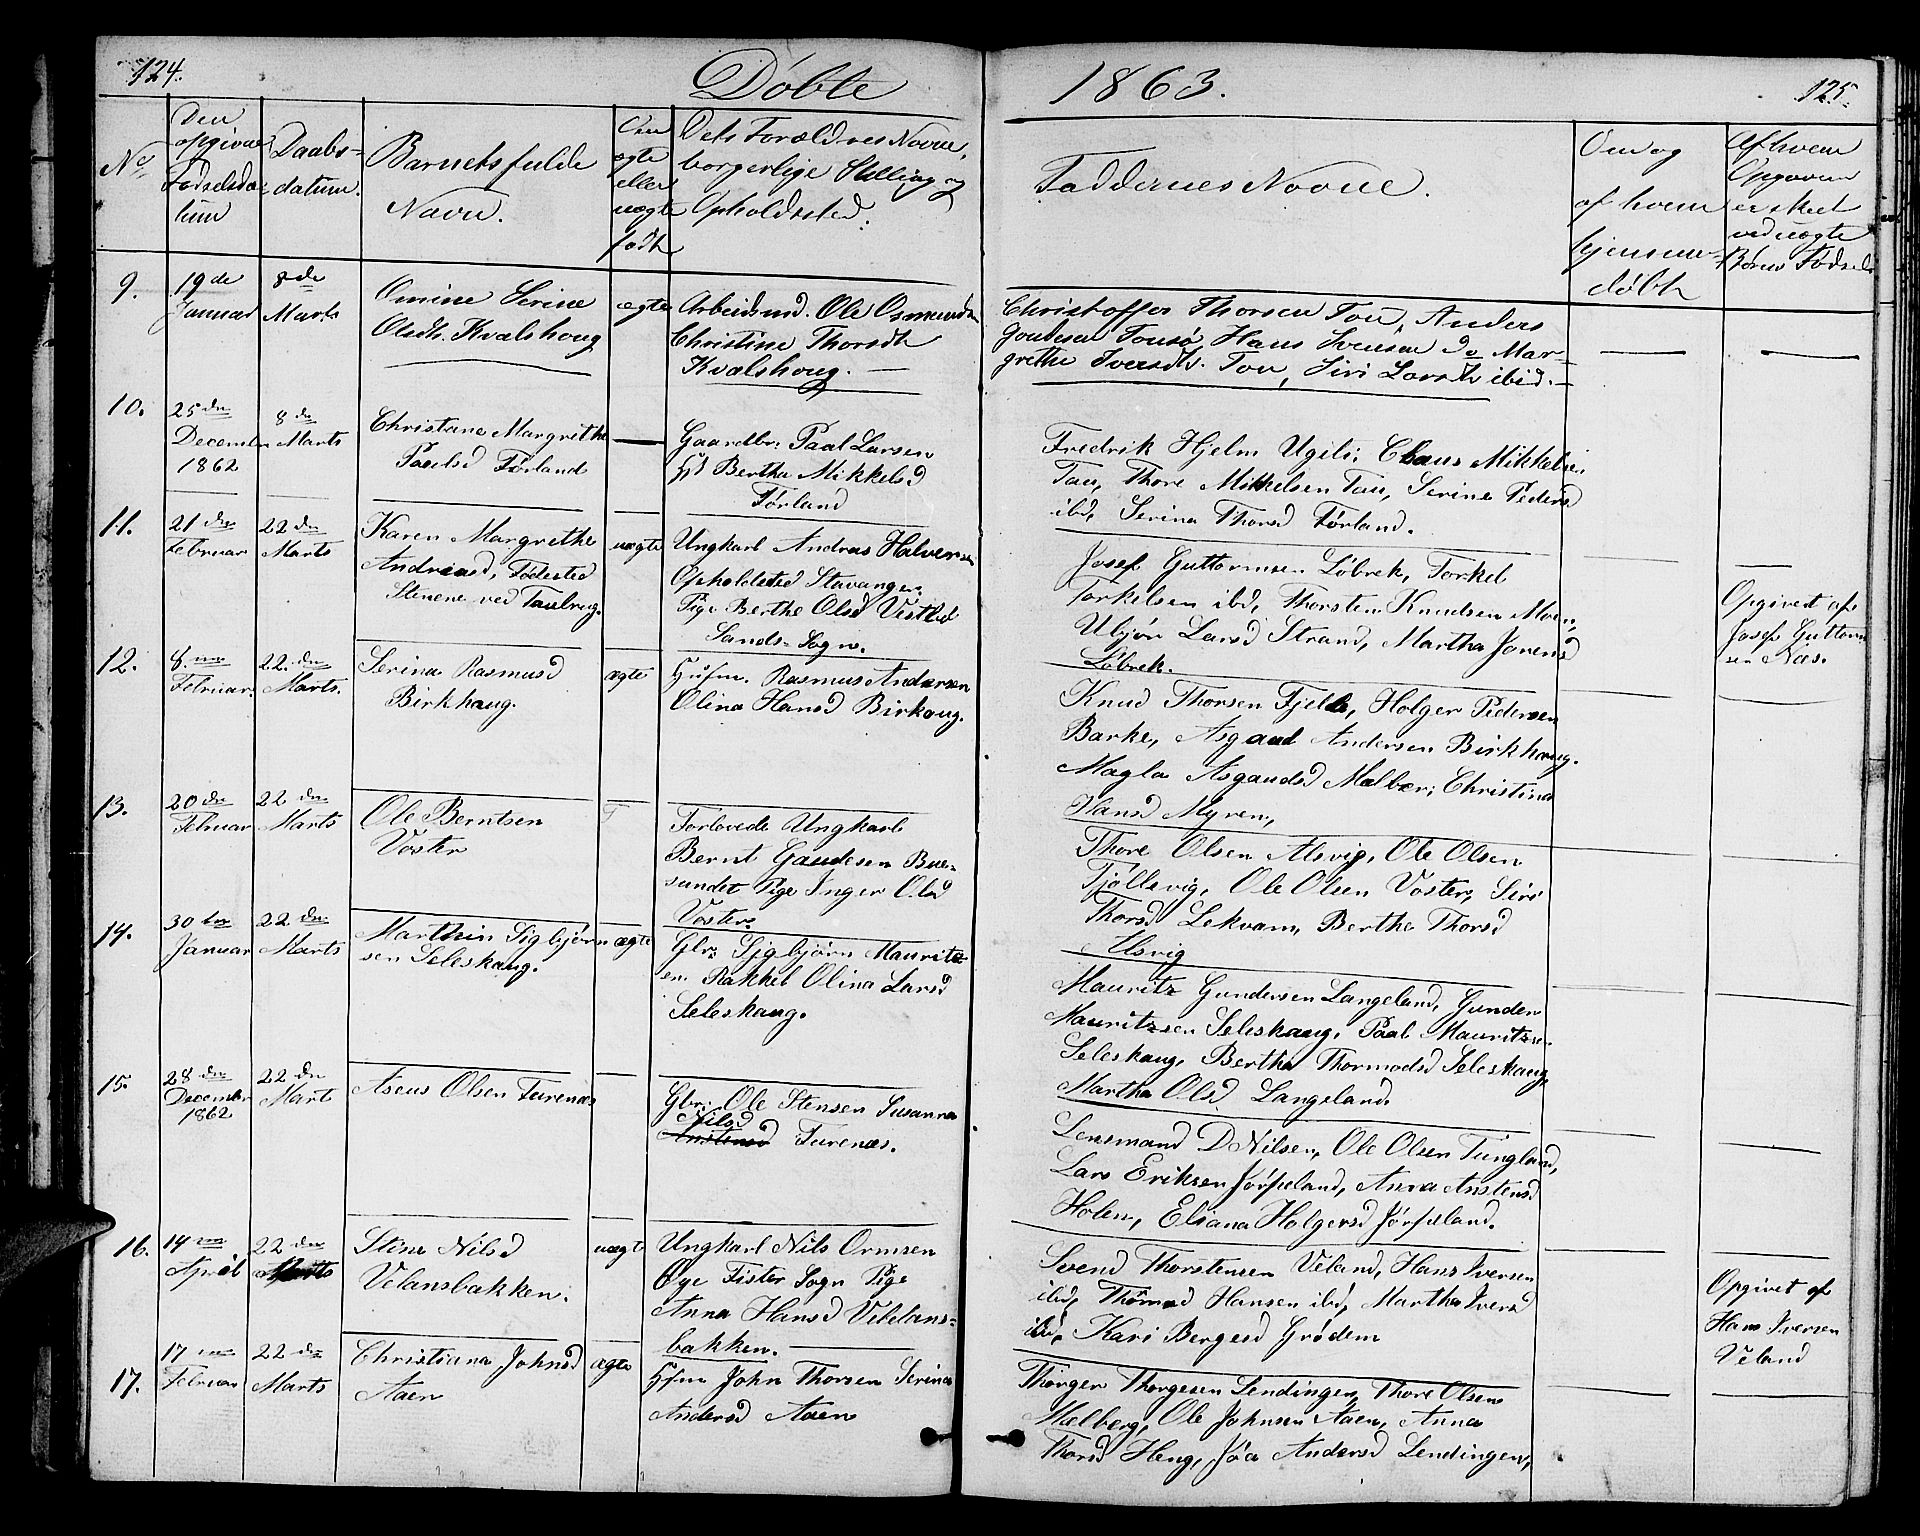 124.
Døbte
1863.
125.
No
Den opgivne Fødselsdatum
Daabsdatum.
Barnets fulde Navn.
Om ægte eller uægte født
Dets Forældres Navne, borgerlige Stilling og Opholdsted.
Faddernes Navne.
Om og af hvem hjemmedøbt
Af hvem Opgaven er skeet ved uægte Børns Fødsel
9.
19de Januar
8de Marts
Omine Serine
Olsdt. Kvalshoug
ægte
Arbeidsmd. Ole Osmundsen
Christine Thorsdt
Kvalshoug.
Christoffer Thorsen Tou, Anders
Goudesen Tousø, Hans Svensen do Mar-
grethe Iversdt. Tou, Siri Larsdt ibid.
10.
25de December 1862
8de Marts
Christane Margrethe
Paalsd Førland
Gaardbr. Paal Larsen
H. Bertha Mikkelsd
Førland
Fredrik Hjelm Ugils; Claus Mikkelsen
Tau, Thore Mikkelsen Tau, Serine Pedersd
ibd, Serina Thorsd Førland.
11.
21de Februar
22de Marts
Karen Margrethe
Andreasd, Fødested
Stenene ved Taubrug.
uægte
Ungkarl Andreas Halversen
Opholdsted Stavanger.
Pige Berthe Olsd Vestbø
Sands-Sogn.
Josef Guttormsen Løbrek, Torkel
Torkelsen ibd, Thorsten Knudsen Moen,
Ubjør Larsd Strand, Martha Jonensd
Løbrek.
Opgivet af
Josef Guttorm
sen Næs.
12.
8de Februar.
22de Marts.
Serina Rasmusd
Birkhaug.
ægte
Husm. Rasmus Andersen
Olina Hansd Birkaug.
Knud Thorsen Fjelde, Holger Pedersen
Barke, Asgaud Andersen Birkhaug.
Magla Asgaudsd Mælber; Christina
Hansd Myren,
13.
20de Februar
22de Marts
Ole Berntsen
Voster
Forlovede Ungkarl
Bernt Gaudesen Bue-
sundet Pige Inger Olsd
Voster.
Thore Olsen Alsvig, Ole Olsen
Fjøllevig, Ole Olsen Voster, Siri
Thorsd Lekvam, Berthe Thorsd
Alsvig
14.
30te Januar
22de Marts
Marthin Sigbjørn
sen Seleskaug.
ægte
Gbr. Sigbjørn Mauritz
en Rakkel Olina Larsd
Seleskaug.
Mauritz Gundersen Langeland, Gunder
Mauritzsen Seleskaug, Paal Mauritzsen
Seleskaug, Bertha Thormodsd Seleskaug
Martha Olsd Langeland
15.
28de December 1862
22de Marts
Aseus Olsen Furenæs
Gbr. Ole Stensen Susanna
Nilsd
Anstensd Furenæs.
Lensmand D Nilsen, Ole Olsen Tungland,
Lars Eriksen Jørpeland, Anna Anstensd
Holen, Eliana Holgersd Jørpeland.
16.
14de April
22de Marts
Stine Nilsd
Velansbakken.
uægte
Ungkarl Nils Ormsen
Øye Fister Sogn Pige
Anna Hansd Velelans-
bakken.
Svend Thorstensen Veland, Hans Iversen
ibid, Hansen ibd, Martha Iversd
ibd, Kari Bergesd Grødem
Opgivet af
Hans Iversen
Veland
17.
17de Februar
22de Marts
Christiana Johnsd
Aaen
ægte
Hfm John Thorsen Serina
Andersd Aaen
Thorger Thorgesen Lendingen, Thore Olsen
Mælberg, Ole Johnsen Aaen, Anna
Thorsd Heng, Jøa Andersd Lendingen,